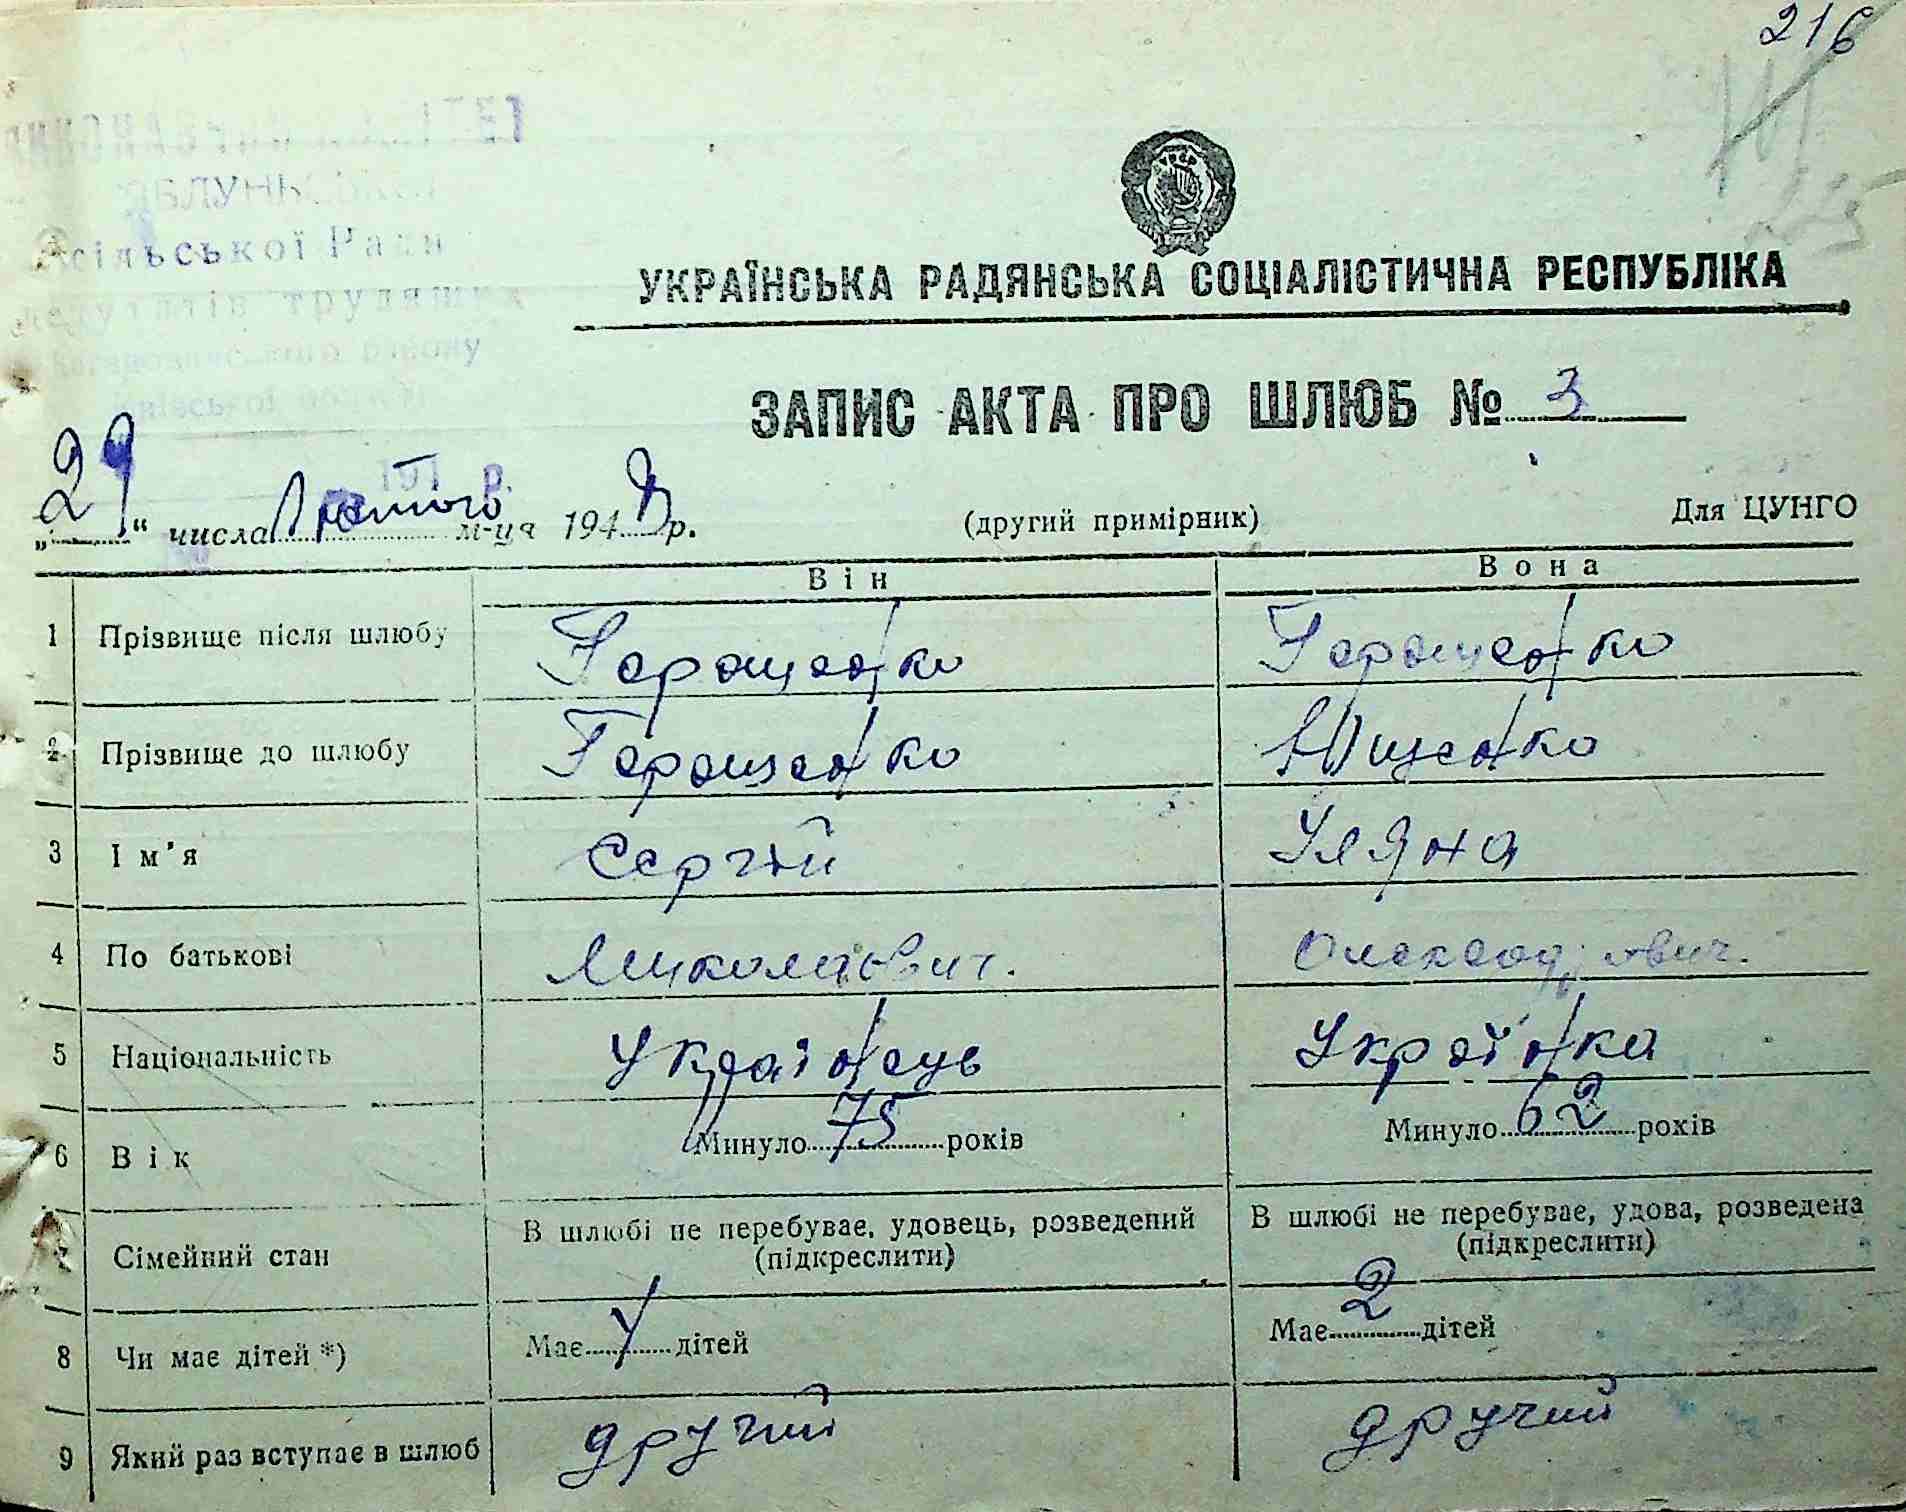 216
ЯБЛУНЬСЬКОЇ
сільської Ради
депутатів трудящих
району
УКРАЇНСЬКА РАДЯНСЬКА СОЦІАЛІСТИЧНА РЕСПУБЛІКА
ЗАПИС АКТА ПРО ШЛЮБ № 3
„29“ числа лютого м-ця 1948 р. (другий примірник) Для ЦУНГО
Він Вона
1 Прізвище після шлюбу Геращенко Геращенко
2 Прізвище до шлюбу Геращенко Ющенко
3 Ім'я Сергій Уляна
4 По батькові Миколаович. Олександрович.
5 Національність Українець Українка
6 Вік Минуло 75 років Минуло 62 років
7 Сімейний стан В шлюбі не перебуває, удовець, розведений (підкреслити) В шлюбі не перебуває, удова, розведена (підкреслити)
8 Чи має дітей *) Має 4 дітей Має 2 дітей
9 Який раз вступає в шлюб другий другий